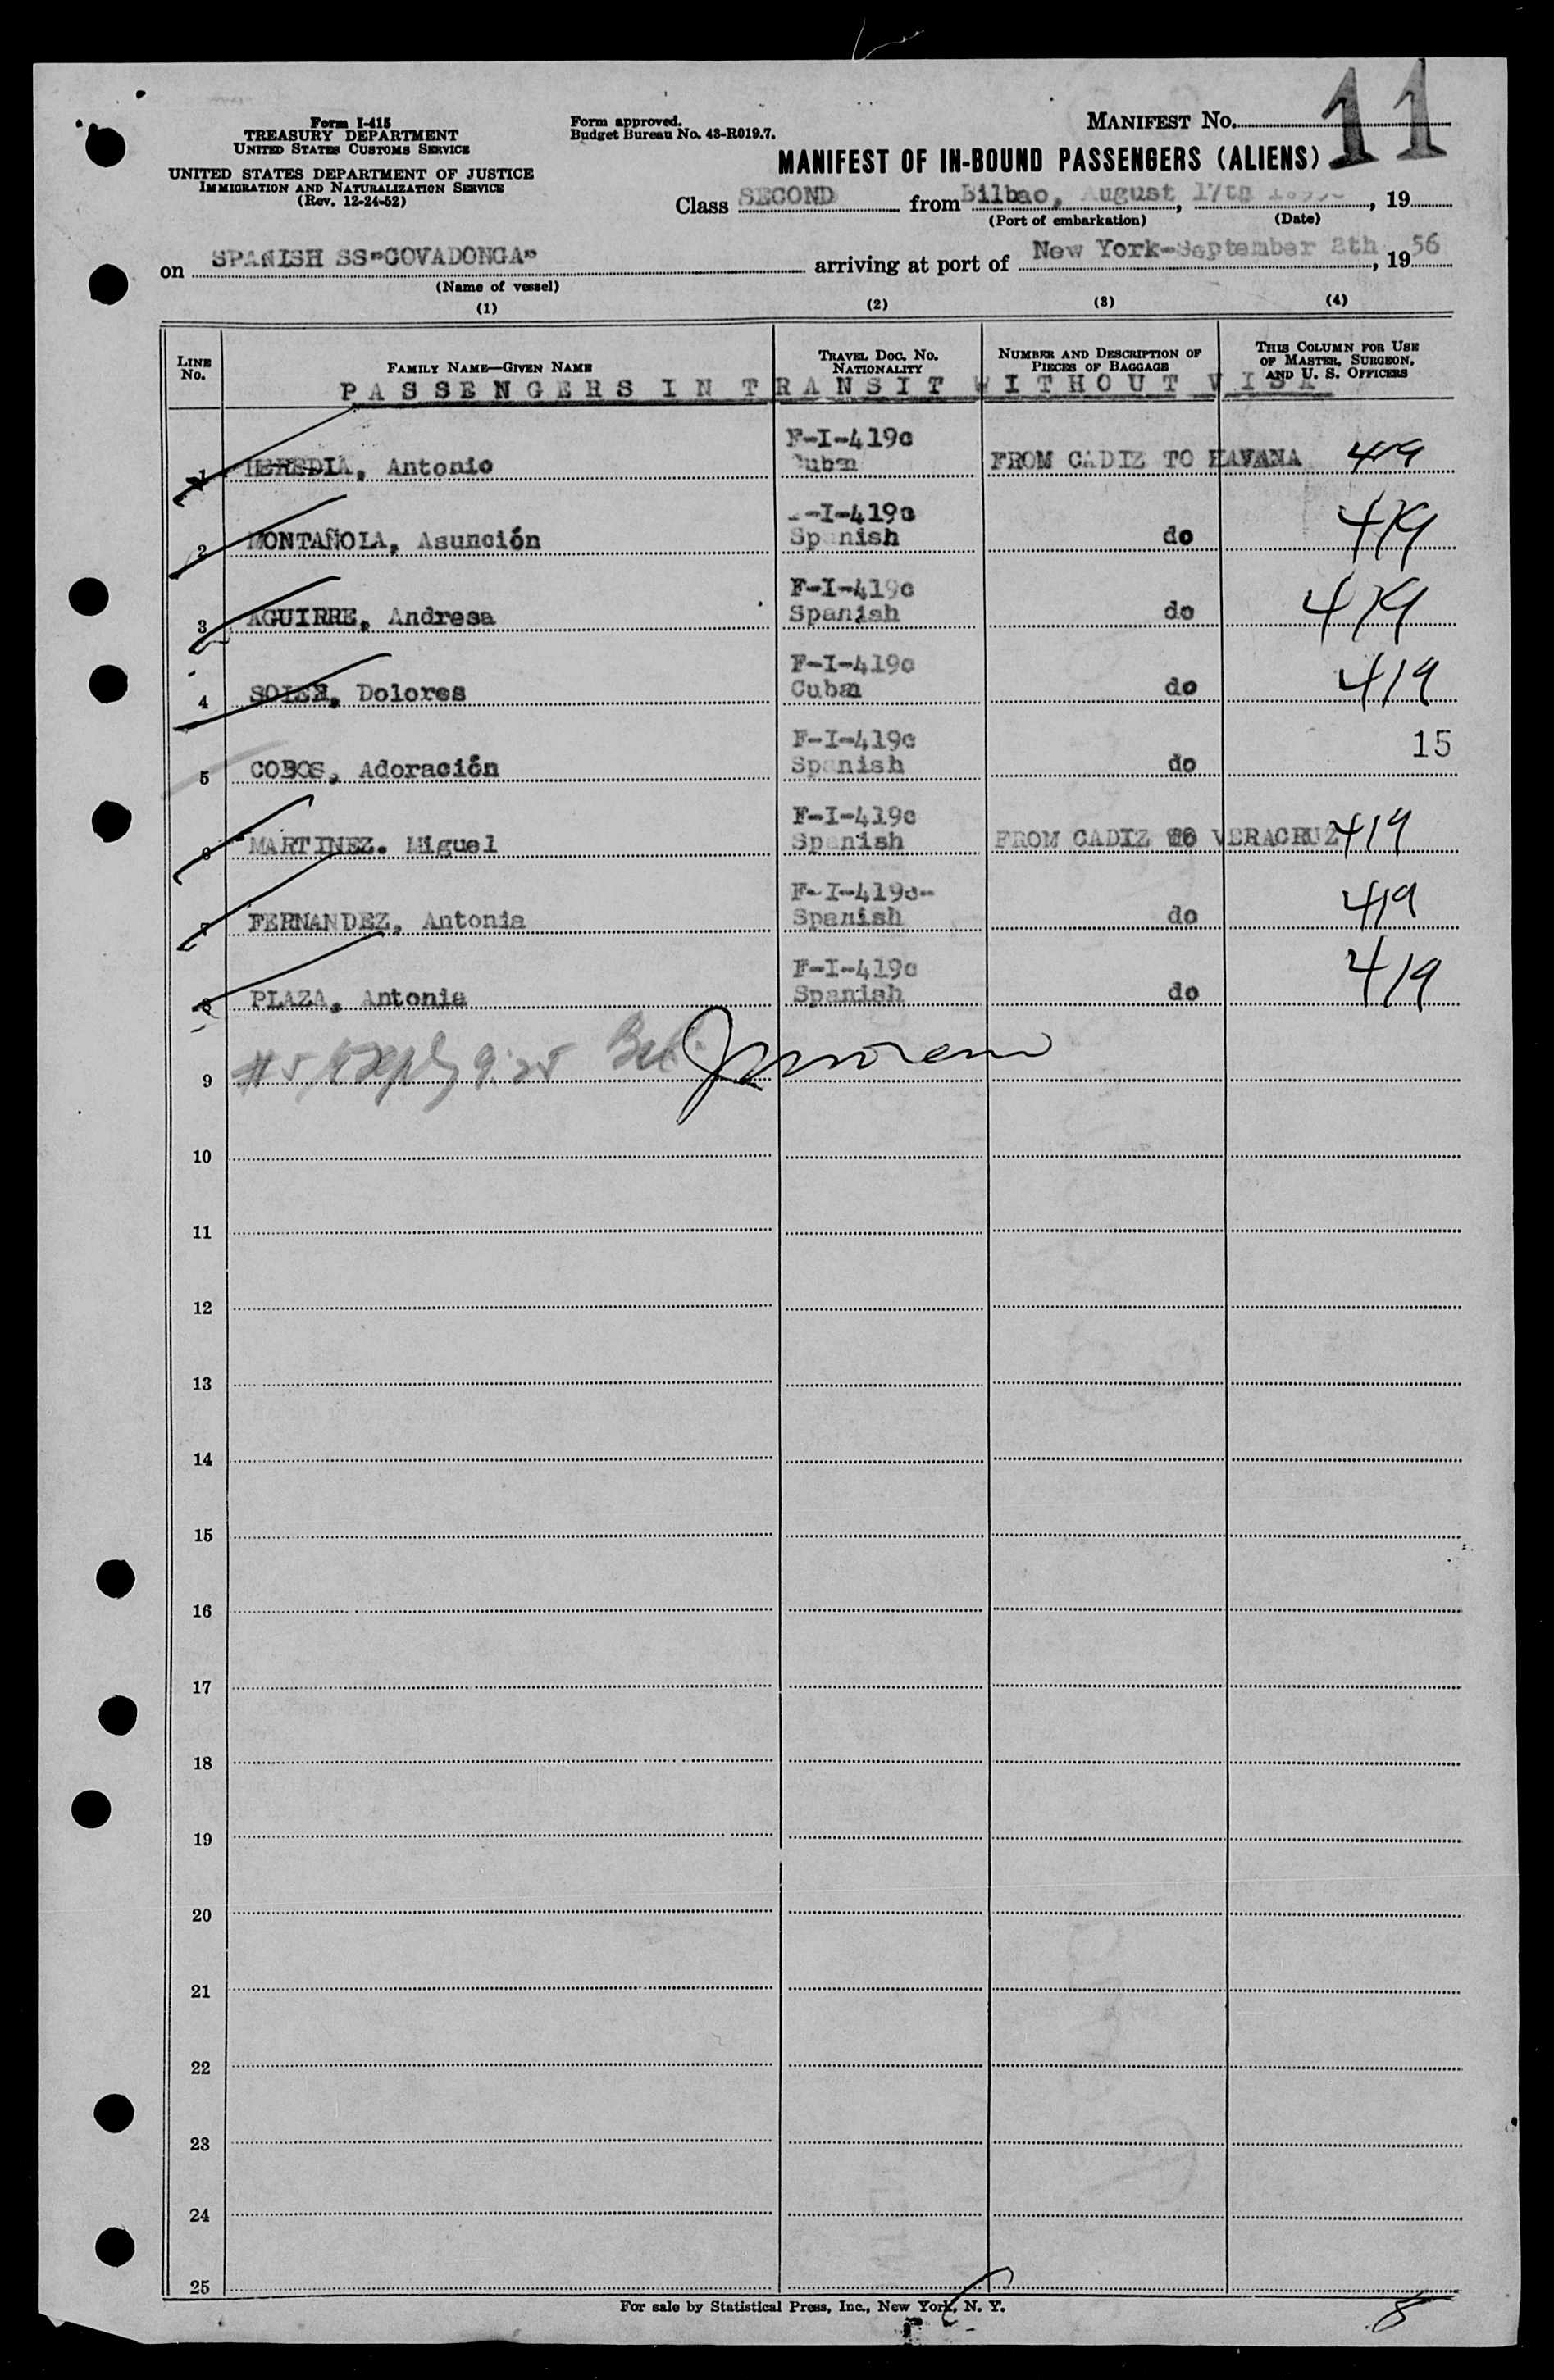 Form I-415
TREASURY DEPARTMENT
UNITED STATES CUSTOMS SERVICE
UNITED STATES DEPARTMENT OF JUSTICE
IMMIGRATION AND NATURALIZATION SERVICE
(Rev. 12-24-52)
Form approved.
Budget Bureau No. 43-R019.7.
MANIFEST No. 11
MANIFEST OF IN-BOUND PASSENGERS (ALIENS)
Class SECOND from Bilbao, August, 17th, 19
(Port of embarkation) (Date)
on SPANISH SS"COVADONGA" arriving at port of New York-September 8th, 1956
(Name of vessel)
(1) (2) (3) (4)
LINE No. FAMILY NAME—GIVEN NAME TRAVEL DOC. NO. NATIONALITY NUMBER AND DESCRIPTION OF PIECES OF BAGGAGE THIS COLUMN FOR USE OF MASTER, SURGEON, AND U. S. OFFICERS
PASSENGERS IN TRANSIT WITHOUT VISA
F-I-419c
1 HEREDIA, Antonio Cuban FROM CADIZ TO HAVANA 419
-I-419c
2 MONTAÑOLA, Asunción Spanish do 419
F-I-419c
3 AGUIRRE, Andresa Spanish do 419
F-I-419c
4 SOLER, Dolores Cuban do 419
F-I-419c
5 COBOS, Adoración Spanish do 15
F-I-419c
6 MARTINEZ. Miguel Spanish FROM CADIZ TO VERACRUZ 419
F-I-419c-
7 FERNANDEZ, Antonia Spanish do 419
F-I-419c
8 PLAZA, Antonia Spanish do 419
9 #5
10
11
12
13
14
15
16
17
18
19
20
21
22
23
24
25
For sale by Statistical Press, Inc., New York, N. Y.
8